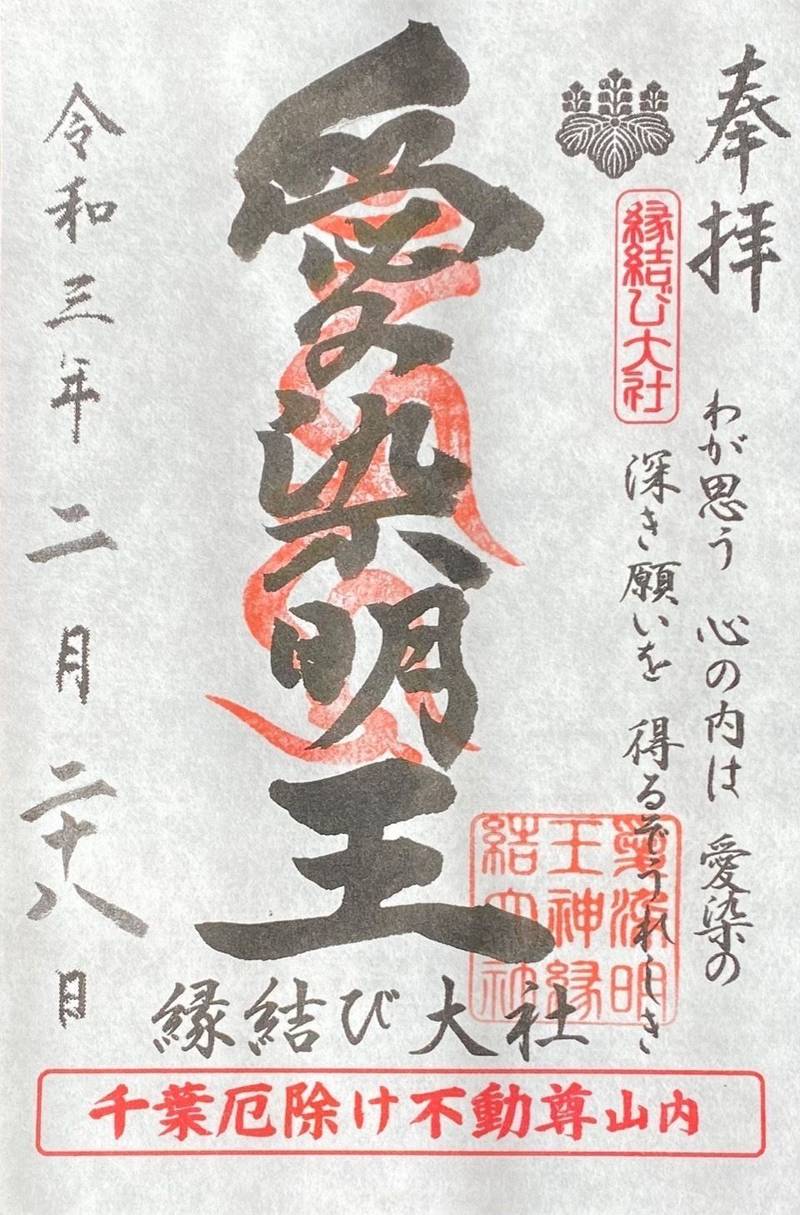 奉拝
わが思う 心の内は 愛染の
深き願いを 得るぞうれしき
縁結び大社
愛染明王
愛染明
王神縁
結大社
縁結び大社
令和三年 二月 二十八日
千葉厄除け不動尊山内